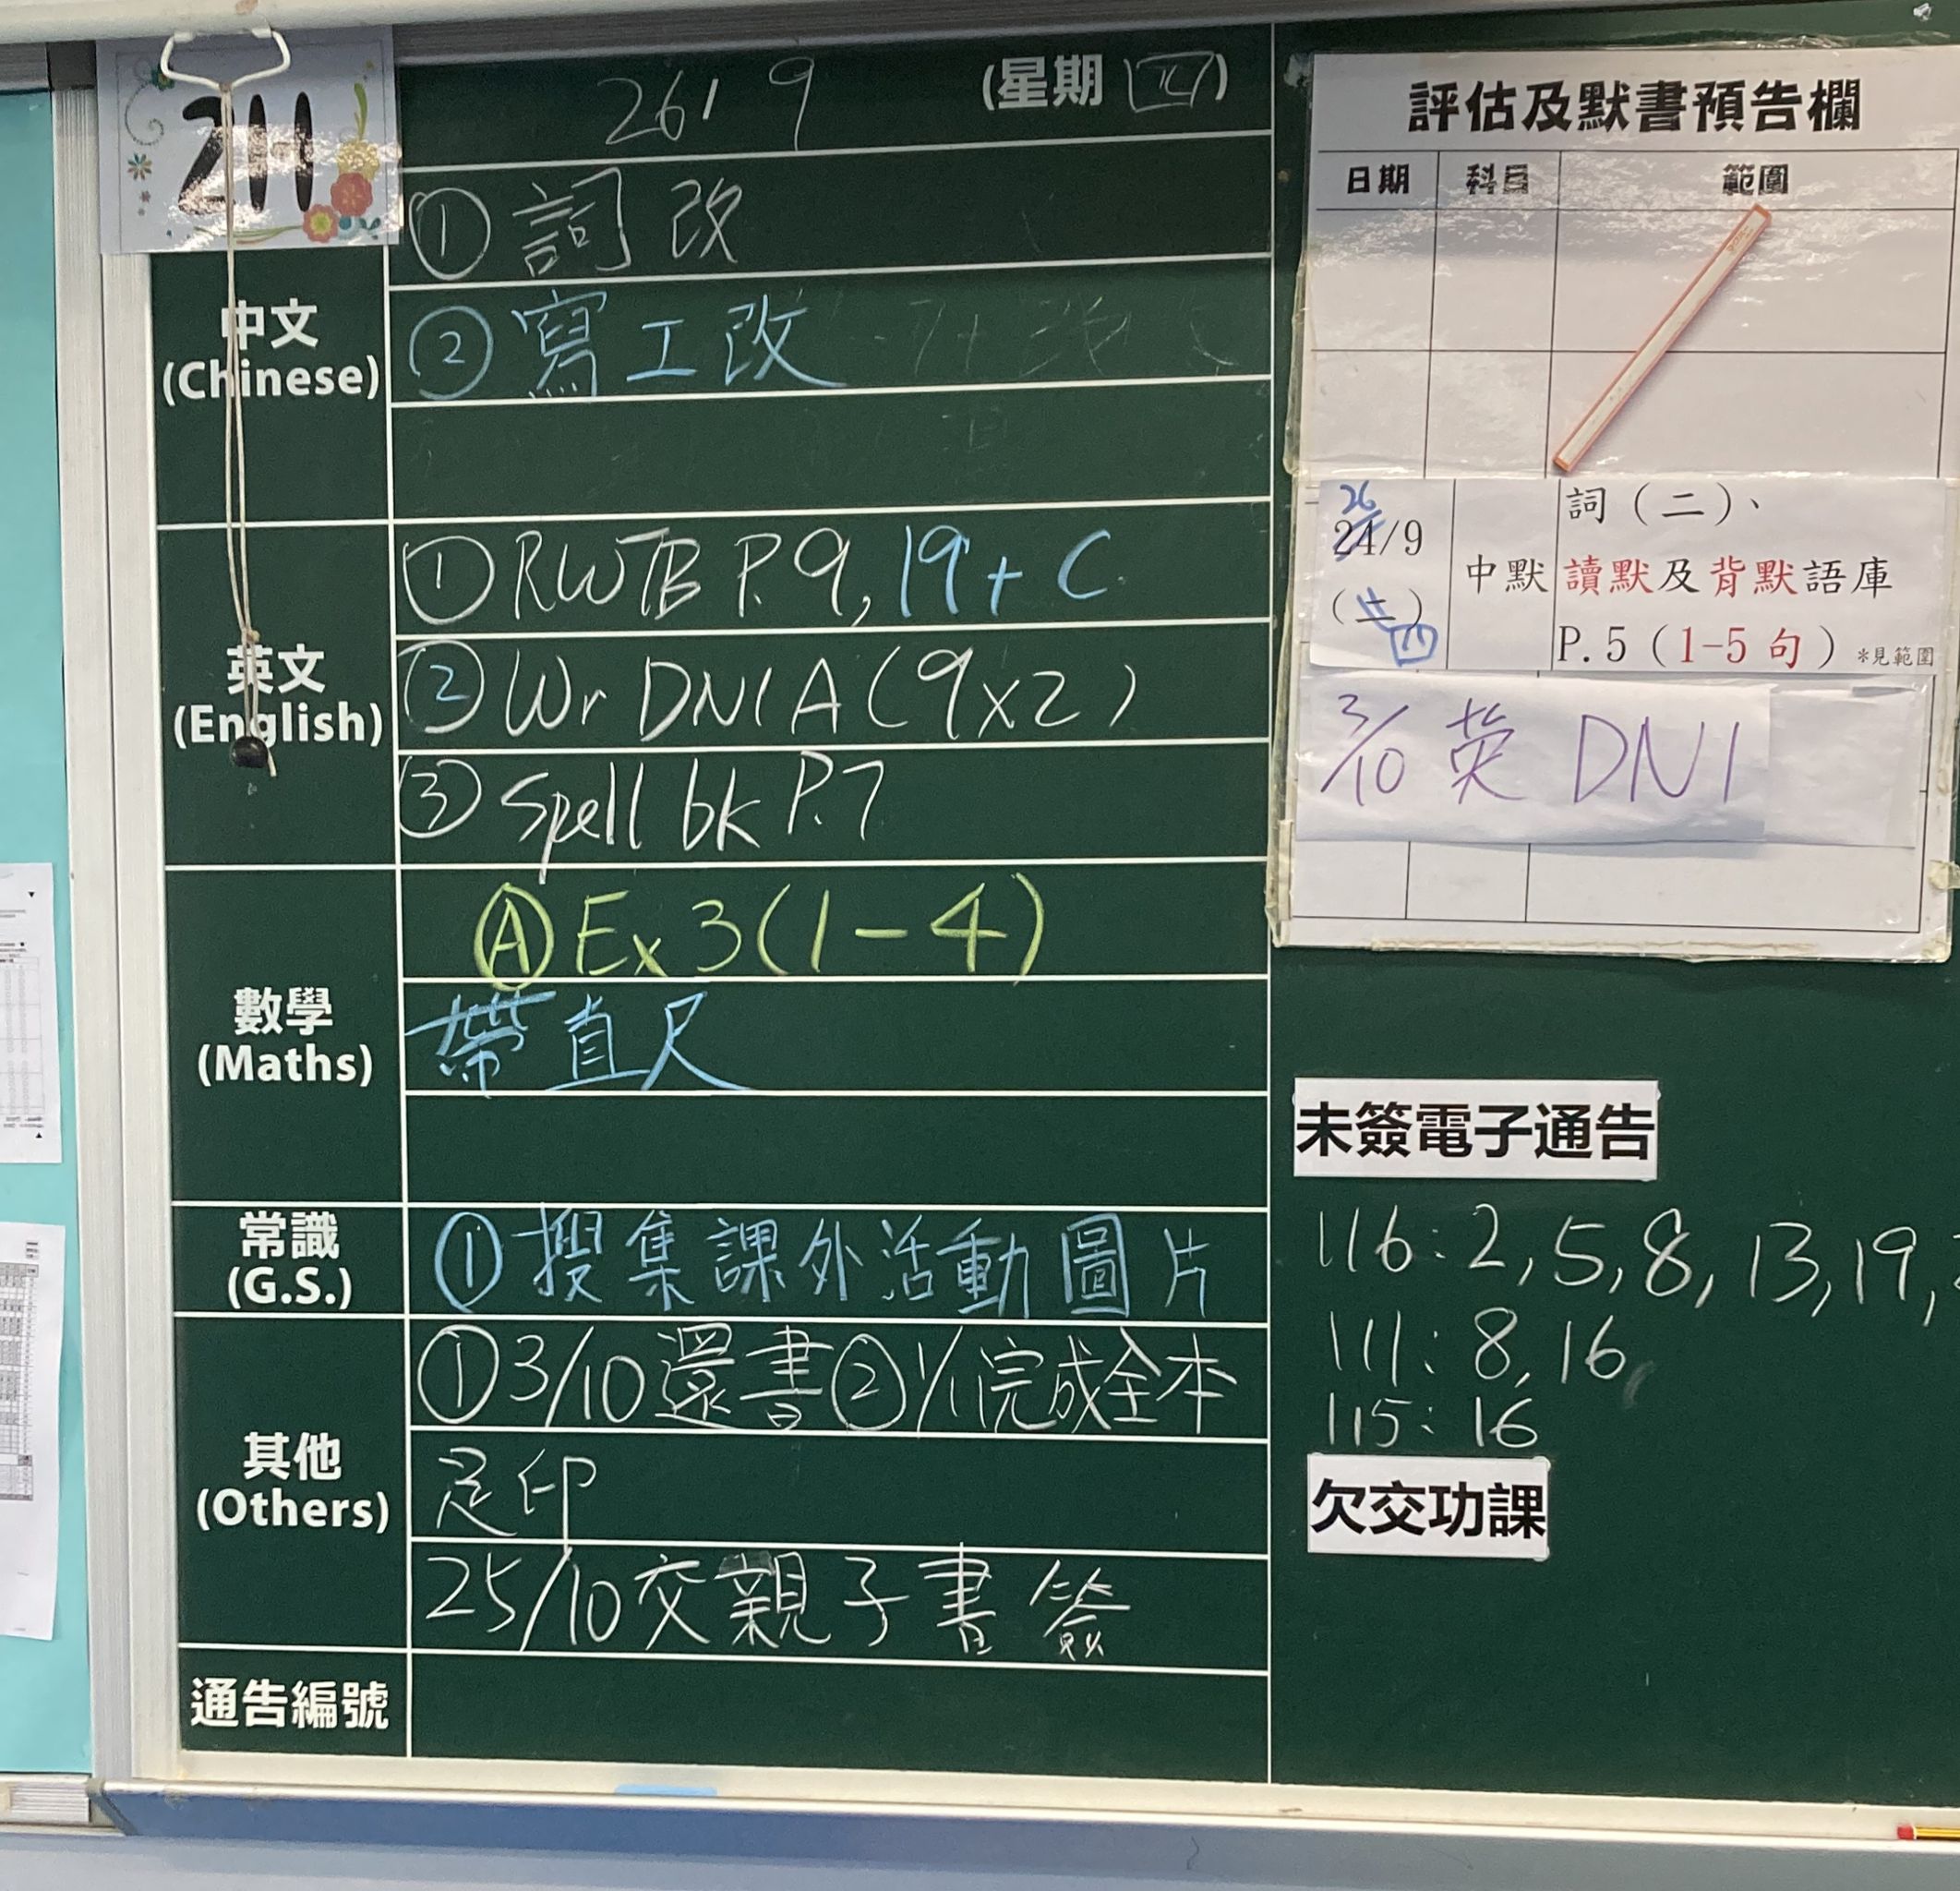 2H
26/9 (星期四)
中文
(Chinese)
① 詞改
② 寫工改
英文
(English)
① RWTB P.9, 19 + C
② Wr DN1A (9x2)
③ Spell bk P.7
數學
(Maths)
Ⓐ Ex 3 (1-4)
帶直尺
常識
(G.S.)
① 搜集課外活動圖片
其他
(Others)
① 3/10 還書 ② 1/11 完成全本
足印
25/10 交親子書簽
通告編號
評估及默書預告欄
日期 科目 範圍
26
24/9 中默 詞（二）、
讀默及背默語庫
(二) 四 P.5（1-5 句）*見範圍
3/10 英 DN1
未簽電子通告
116: 2, 5, 8, 13, 19,
111: 8, 16,
115: 16
欠交功課